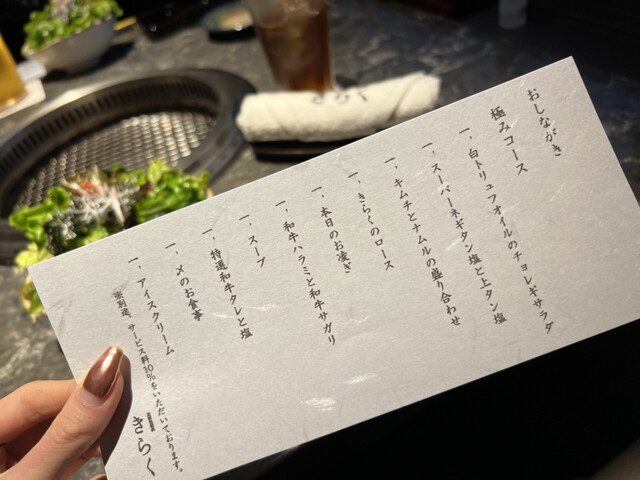 おしながき
極みコース
一、白トリュフオイルのチョレギサラダ
一、スーパーネギタン塩と上タン塩
一、キムチとナムルの盛り合わせ
一、きらくのロース
一、本日のお凌ぎ
一、和牛ハラミと和牛サガリ
一、スープ
一、特選和牛タレと塩
一、〆のお食事
一、アイスクリーム
サービス料10%をいただいております。
きらく
きらく